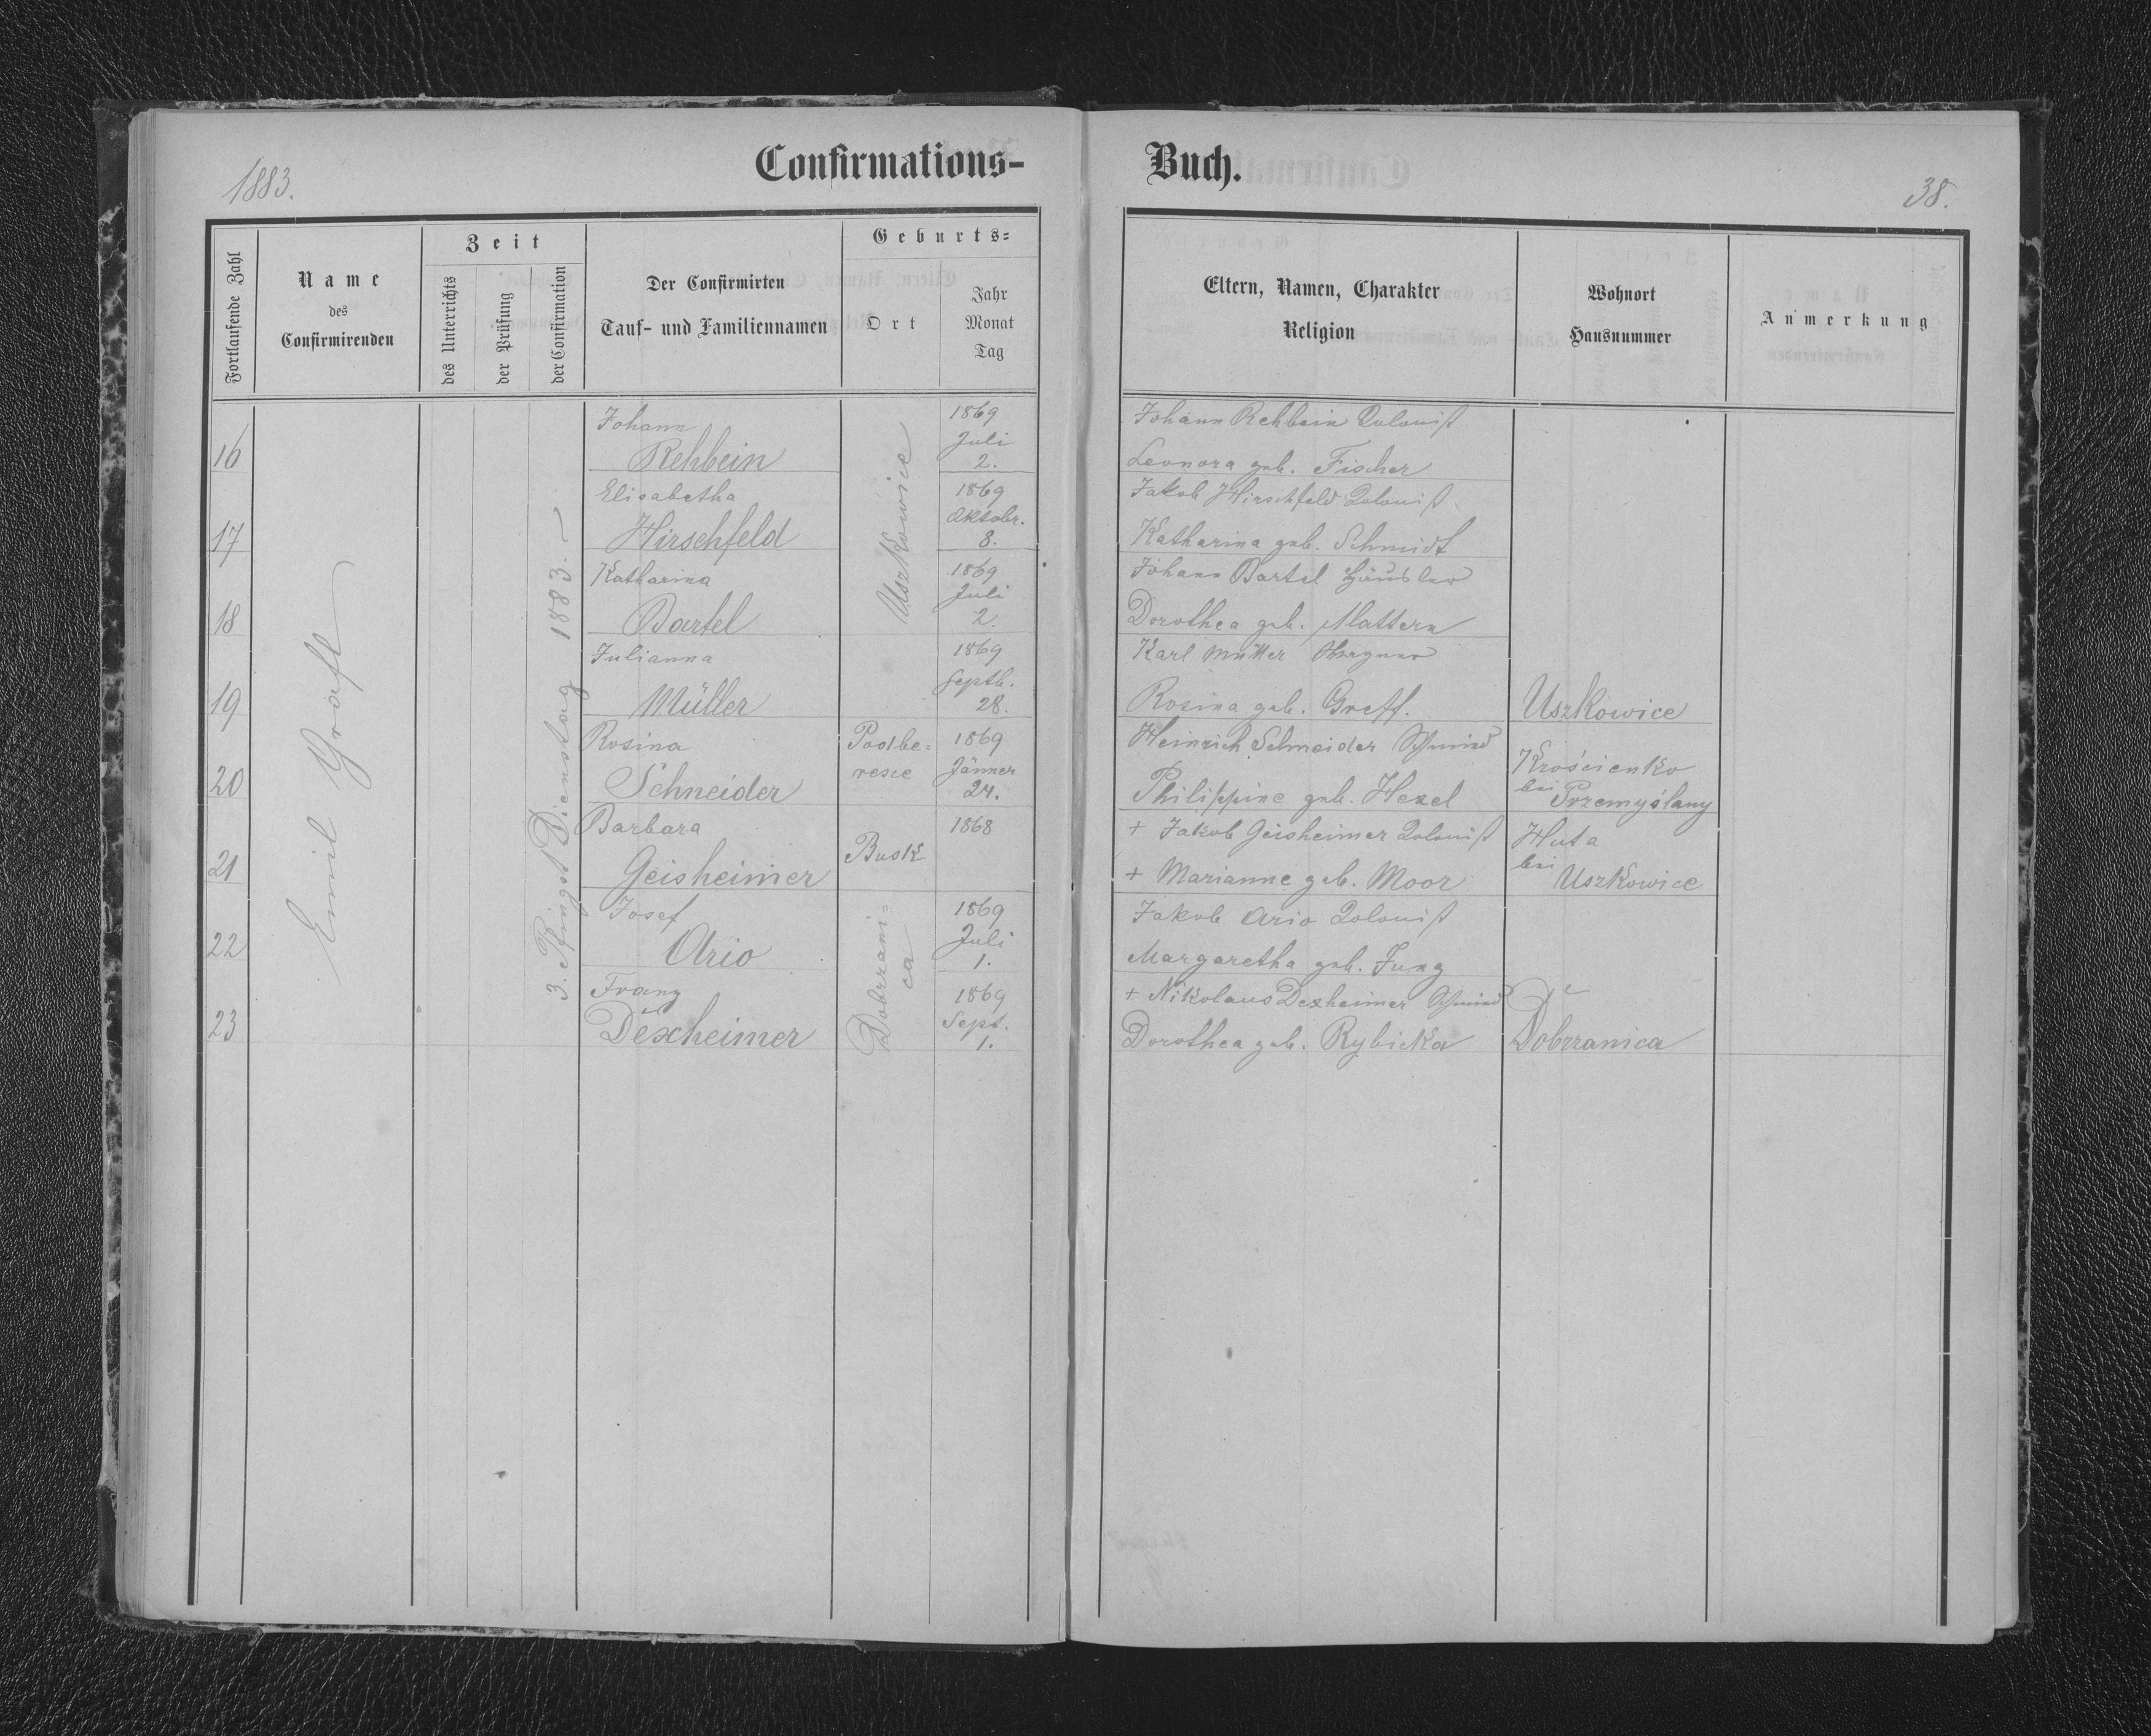 1883.
Confirmations-
Buch.
38.
Fortlaufende Zahl
Name
des
Confirmirenden
Zeit
des Unterrichts
der Prüfung
der Confirmation
Der Confirmirten
Tauf- und Familiennamen
Geburts-
Ort
Jahr
Monat
Tag
Eltern, Namen, Charakter
Religion
Wohnort
Hausnummer
Anmerkung
Emil
3. Pfingst Dienstag 1883.
Uszkowice
16
Johann
Rehbein
1869
Juli
2.
Johann Rehbein Colonist
Leonora geb. Fischer
17
Elisabetha
Hirschfeld
1869
Oktobr.
8.
Jakob Hirschfeld Colonist
Katharina geb. Schmidt
18
Katharina
Bartel
1869
Juli
2.
Johann Bartel Häusler
Dorothea geb. Mattern
19
Julianna
Müller
1869
Septb.
28.
Karl Müller
Rosina geb. Greff.
Uszkowice
20
Rosina
Schneider
Podbe=
resce
1869
Jänner
24.
Heinrich Schneider Schmied
Philippine geb. Hexel
Krościenko
bei
Przemyślany
21
Barbara
Geisheimer
Busk
1868
+ Jakob Geisheimer Colonist
+ Marianne geb. Moor
Huta
bei
Uszkowice
Dobrzani=
ca
22
Josef
Ario
1869
Juli
1.
Jakob Ario Colonist
Margaretha geb. Jung
23
Franz
Dexheimer
1869
Sept.
1.
+ Nikolaus Dexheimer Schmied
Dorothea geb. Rybicka
Dobrzanica